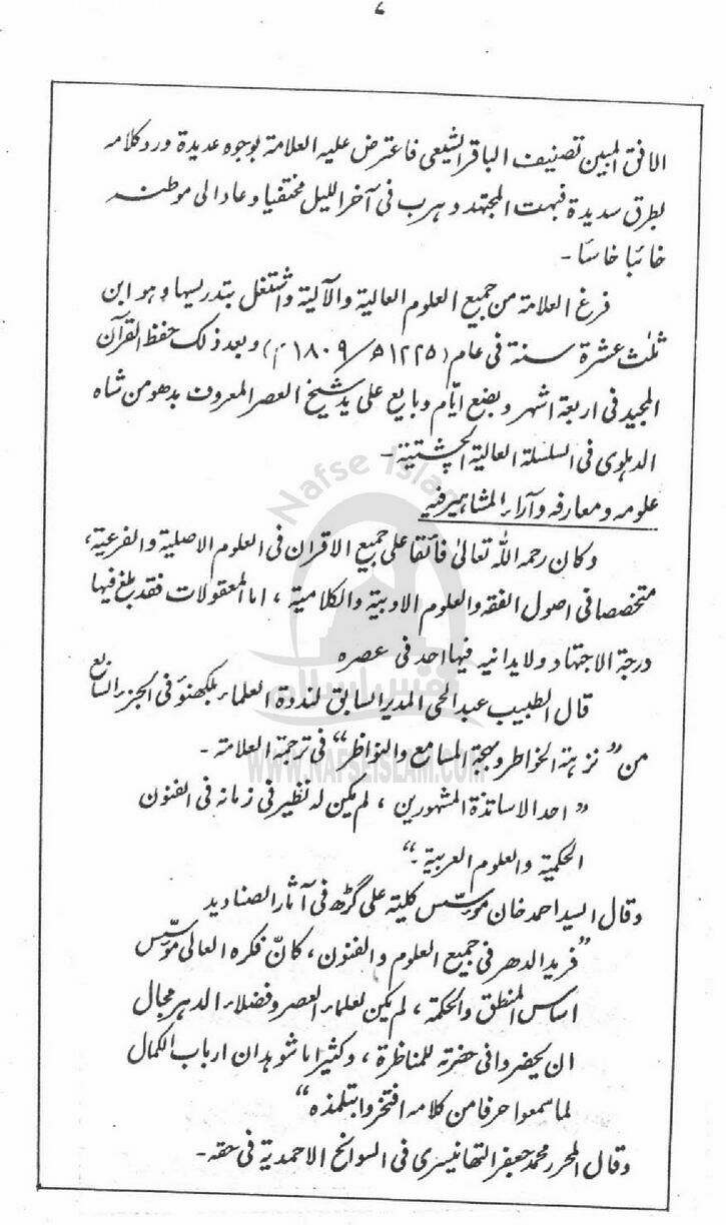 ۷
الافق المبین تصنیف الباقر الشیعی فاعترض علیه العلامة بوجوه عدیدة ورد کلامه
بطرق سدیدة فبهت المجتهد وهرب فی آخر اللیل مختفیا وعاد الی موطنه
خائبا خاسئا۔
فرغ العلامة من جمیع العلوم العالیة والآلیة واشتغل بتدریسها وهو ابن
ثلث عشرة سنة فی عام (۱۲۲۵ھ/۱۸۰۹م) وبعد ذلک حفظ القرآن
المجید فی اربعة اشهر وبضع ایّام وبایع علی ید شیخ العصر المعروف بدهومن شاه
الدهلوی فی السلسلة العالیة الچشتیة۔
علومه ومعارفه وآراء المشاهیر فیه
وکان رحمه الله تعالیٰ فائقا علی جمیع الاقران فی العلوم الاصلیة والفرعیة،
متخصصا فی اصول الفقه والعلوم الادبیة والکلامیة، اما المعقولات فقد بلغ فیها
درجة الاجتهاد ولا یدانیه فیها احد فی عصره
قال الطبیب عبدالحی المدیر السابق لندوة العلماء بلکهنؤ فی الجزء السابع
من "نزهة الخواطر وبهجة المسامع والنواظر" فی ترجمة العلامة۔
"احد الاساتذة المشهورین، لم یکن له نظیر فی زمانه فی الفنون
الحکمیة والعلوم العربیة۔"
وقال السید احمد خان مؤسّس کلیة علی گڑھ فی آثار الصنادید
"فرید الدهر فی جمیع العلوم والفنون، کانّ فکره العالی مؤسّس
اساس المنطق والحکمة، لم یکن لعلماء العصر وفضلاء الدهر مجال
ان یحضروا فی حضرته للمناظرة، وکثیرا ما شوهد ان ارباب الکمال
لما سمعوا حرفا من کلامه افتخروا بتلمذه"
وقال المحرر محمد جعفر التهانیسری فی السوانح الاحمدیة فی حقه۔
Nafse Islam
نفس اسلام
WWW.NAFSEISLAM.COM